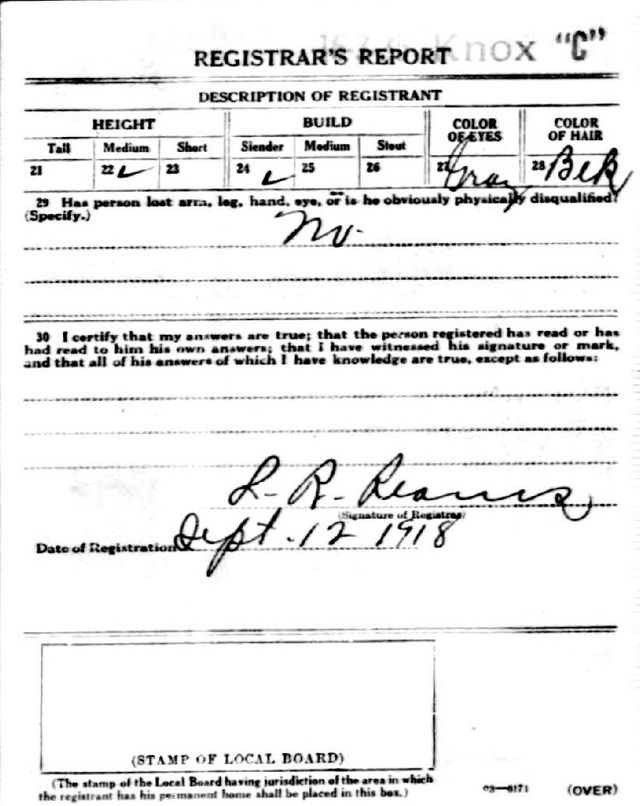 Knox "C"
REGISTRAR'S REPORT
DESCRIPTION OF REGISTRANT
HEIGHT BUILD COLOR OF EYES COLOR OF HAIR
Tall Medium Short Slender Medium Stout
21 22 ✓ 23 24 ✓ 25 26 27 Gray 28 Blk
29 Has person lost arm, leg, hand, eye, or is he obviously physically disqualified?
(Specify.)
No.
30 I certify that my answers are true; that the person registered has read or has
had read to him his own answers; that I have witnessed his signature or mark,
and that all of his answers of which I have knowledge are true, except as follows:
L. R. Reams
(Signature of Registrar)
Date of Registration Sept. 12 1918
(STAMP OF LOCAL BOARD)
(The stamp of the Local Board having jurisdiction of the area in which
the registrant has his permanent home shall be placed in this box.)
03—6171 (OVER)